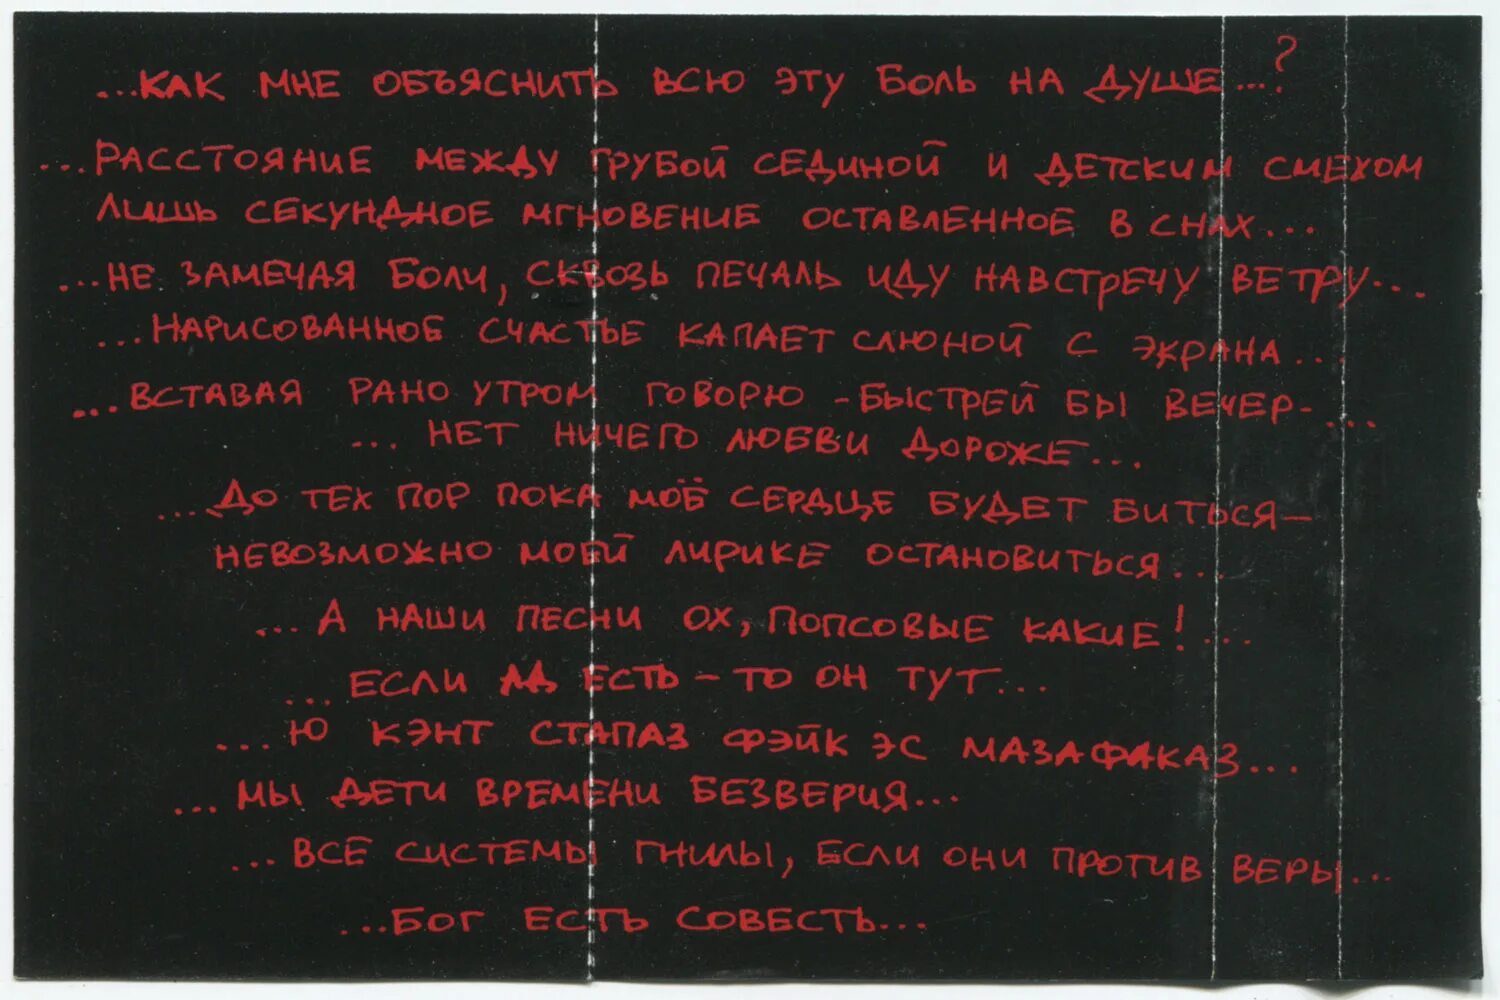 ...КАК МНЕ ОБЪЯСНИТЬ ВСЮ ЭТУ БОЛЬ НА ДУШЕ...?
...РАССТОЯНИЕ МЕЖДУ ГРУБОЙ СЕДИНОЙ И ДЕТСКИМ СМЕХОМ
ЛИШЬ СЕКУНДНОЕ МГНОВЕНИЕ ОСТАВЛЕННОЕ В СНАХ...
...НЕ ЗАМЕЧАЯ БОЛИ, СКВОЗЬ ПЕЧАЛЬ ИДУ НАВСТРЕЧУ ВЕТРУ...
...НАРИСОВАННОЕ СЧАСТЬЕ КАПАЕТ СЛЮНОЙ С ЭКРАНА...
...ВСТАВАЯ РАНО УТРОМ ГОВОРЮ -БЫСТРЕЙ БЫ ВЕЧЕР-...
...НЕТ НИЧЕГО ЛЮБВИ ДОРОЖЕ...
...ДО ТЕХ ПОР ПОКА МОЁ СЕРДЦЕ БУДЕТ БИТЬСЯ-
НЕВОЗМОЖНО МОЕЙ ЛИРИКЕ ОСТАНОВИТЬСЯ...
...А НАШИ ПЕСНИ ОХ, ПОПСОВЫЕ КАКИЕ!...
...ЕСЛИ АД ЕСТЬ - ТО ОН ТУТ...
...Ю КЭНТ СТАПАЗ ФЭЙК ЭС МАЗАФАКАЗ...
...МЫ ДЕТИ ВРЕМЕНИ БЕЗВЕРИЯ...
...ВСЕ СИСТЕМЫ ГНИЛЫ, ЕСЛИ ОНИ ПРОТИВ ВЕРЫ...
...БОГ ЕСТЬ СОВЕСТЬ...